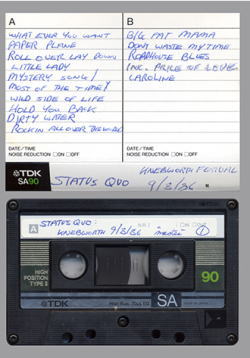 A
B
WHAT EVER YOU WANT
PAPER PLANE
ROLL OVER LAY DOWN
LITTLE LADY
MYSTERY SONG/
MOST OF THE TIME/
WILD SIDE OF LIFE
HOLD YOU BACK
DIRTY WATER
ROCKIN ALL OVER THE WORLD
BIG FAT MAMA
DONT WASTE MY TIME
ROADHOUSE BLUES
INC. PRICE OF LOVE
CAROLINE
DATE/TIME
NOISE REDUCTION ☐ON ☐OFF
DATE/TIME
NOISE REDUCTION ☐ON ☐OFF
TDK
SA90
STATUS QUO
KNEBWORTH FESTIVAL
9/8/86
A
STATUS QUO:
KNEBWORTH 9/8/86
1
HIGH
POSITION
TYPE II
90
TDK
SA